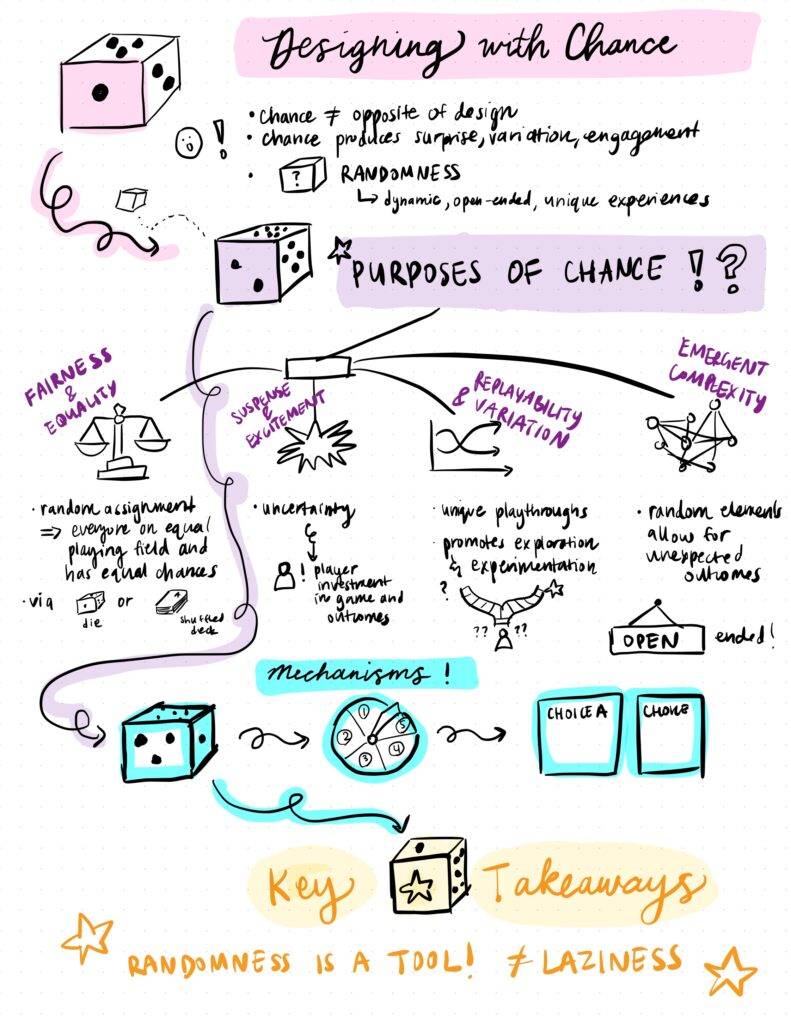 Designing with Chance
• Chance ≠ opposite of design
• chance produces surprise, variation, engagement
!
• ? RANDOMNESS
↳ dynamic, open-ended, unique experiences
PURPOSES OF CHANCE !?
FAIRNESS
&
EQUALITY
• random assignment
⇒ everyone on equal
playing field and
has equal chances
• via die or shuffled deck
SUSPENSE
&
EXCITEMENT
• uncertainty
! player
investment
in game and
outcomes
REPLAYABILITY
& VARIATION
• unique playthroughs
• promotes exploration
& experimentation
?
?? ??
EMERGENT
COMPLEXITY
• random elements
allow for
unexpected
outcomes
OPEN ended!
Mechanisms!
1
2
3
4
5
CHOICE A
CHOICE
Key Takeaways
RANDOMNESS IS A TOOL! ≠ LAZINESS